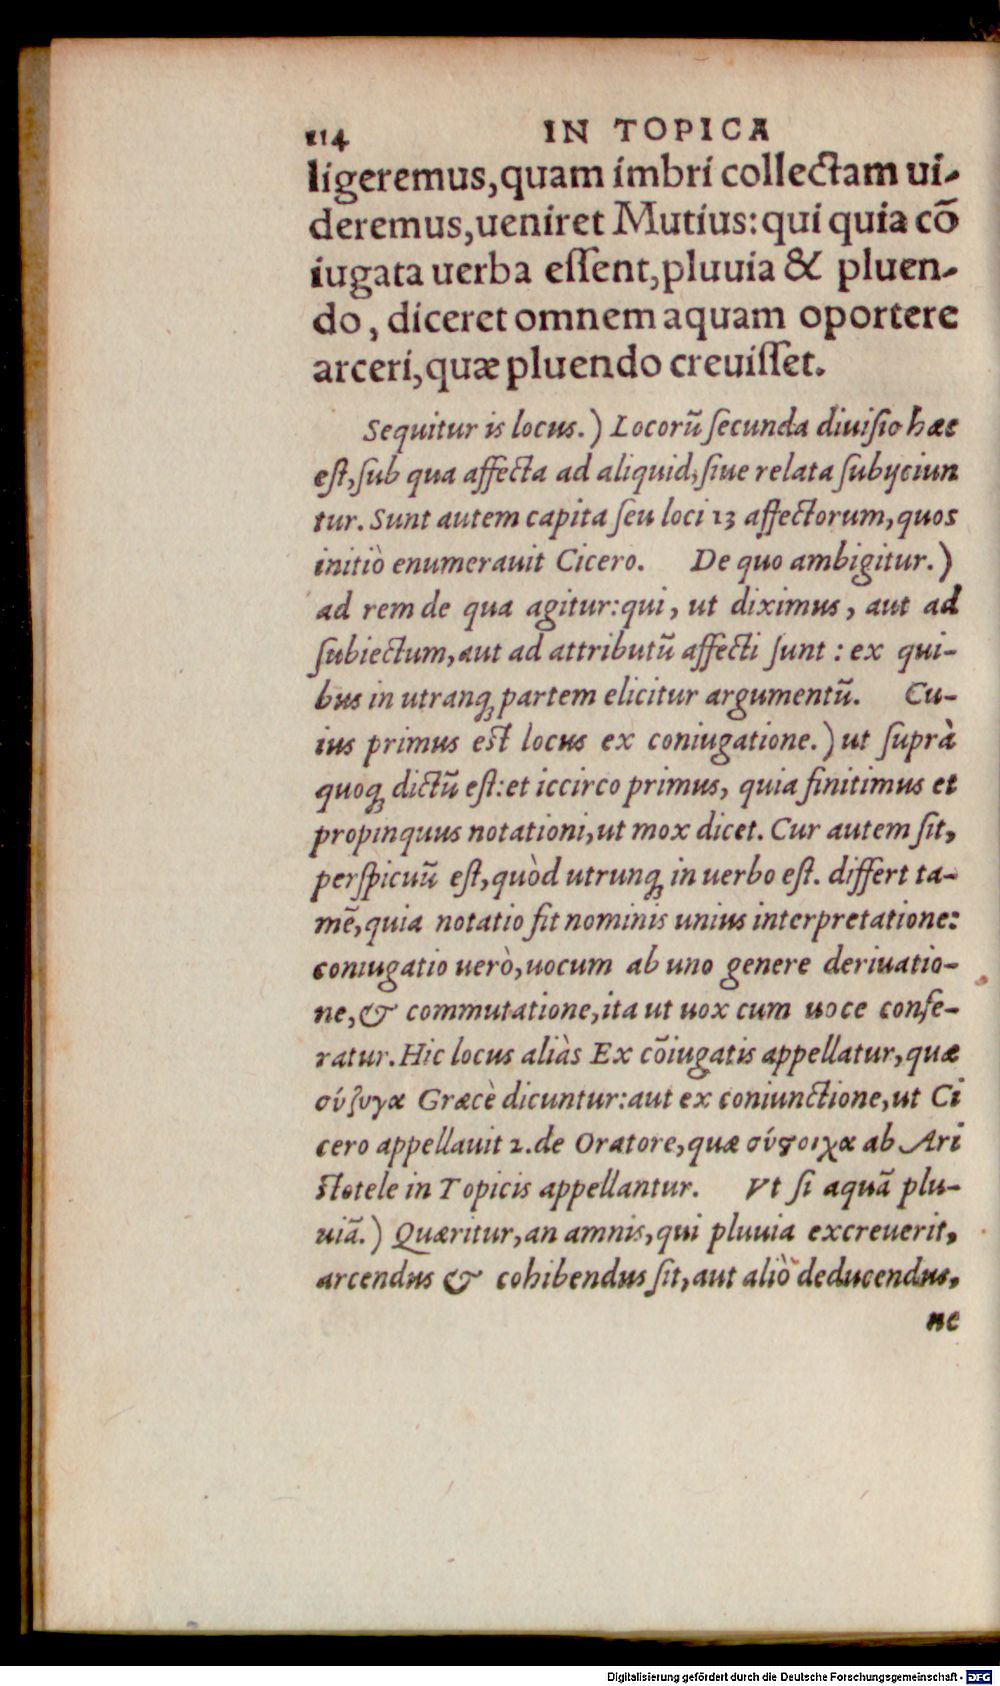 114 IN TOPICA
ligeremus,quam imbri collectam ui-
deremus,ueniret Mutius:qui quia cõ
iugata uerba essent,pluuia & pluen-
do, diceret omnem aquam oportere
arceri,quæ pluendo creuisset.
Sequitur is locus.) Locorũ secunda diuisio hæc
est,sub qua affecta ad aliquid,siue relata subijciun
tur. Sunt autem capita seu loci 13 affectorum,quos
initiò enumerauit Cicero. De quo ambigitur.)
ad rem de qua agitur:qui, ut diximus, aut ad
subiectum,aut ad attributũ affecti sunt: ex qui-
bus in utranq; partem elicitur argumentũ. Cu-
ius primus est locus ex coniugatione.) ut suprà
quoq; dictũ est:et iccirco primus, quia finitimus et
propinquus notationi,ut mox dicet. Cur autem sit,
perspicuũ est,quòd utrunq; in uerbo est. differt ta-
mẽ,quia notatio fit nominis unius interpretatione:
coniugatio uerò,uocum ab uno genere deriuatio-
ne,& commutatione,ita ut uox cum uoce confe-
ratur. Hic locus aliàs Ex cõiugatis appellatur,quæ
σύζυγα Græcè dicuntur:aut ex coniunctione,ut Ci
cero appellauit 2.de Oratore,quæ σύςοιχα ab Ari
stotele in Topicis appellantur. Vt si aquã plu-
uiã.) Quæritur,an amnis,qui pluuia excreuerit,
arcendus & cohibendus sit,aut aliò deducendus,
ne
Digitalisierung gefördert durch die Deutsche Forschungsgemeinschaft - DFG